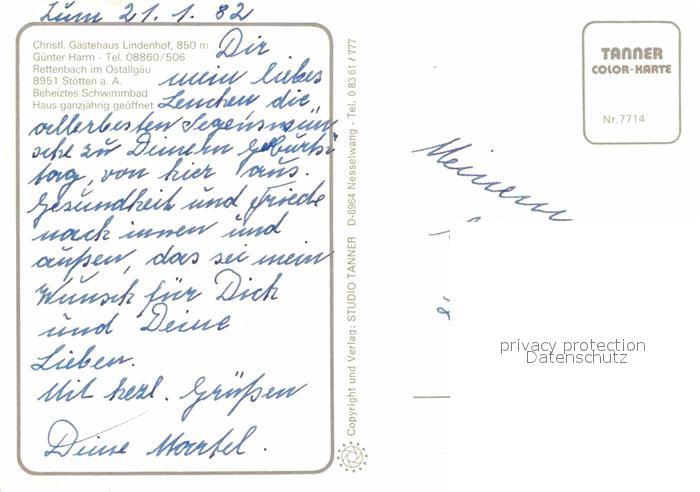 Zum 21.1.82
Christl. Gästehaus Lindenhof, 850 m
Günter Harm - Tel. 08860/506
Rettenbach im Ostallgäu
8951 Stötten a. A.
Beheiztes Schwimmbad
Haus ganzjährig geöffnet
Dir
mein liebes
Lenchen die
allerbesten Segenswün
sche zu Deinem Geburts
tag, von hier aus.
Gesundheit und Friede
nach innen und
außen, das sei mein
Wunsch für Dich
und Deine
Lieben.
Mit herzl. Grüßen
Deine Martel.
Copyright und Verlag: STUDIO TANNER D-8964 Nesselwang - Tel. 0 83 61 / 777
TANNER
COLOR-KARTE
Nr. 7714
Meinem
privacy protection
Datenschutz